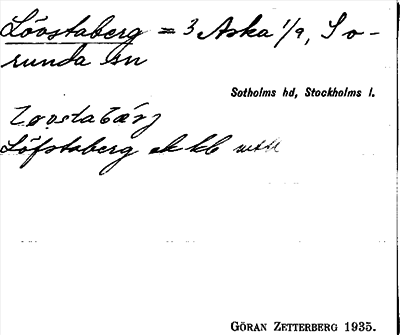 Lövstaberg = 3 Aska 1/9, So-
runda sn
Sotholms hd, Stockholms l.
Löfstaberg ek kb
GÖRAN ZETTERBERG 1935.